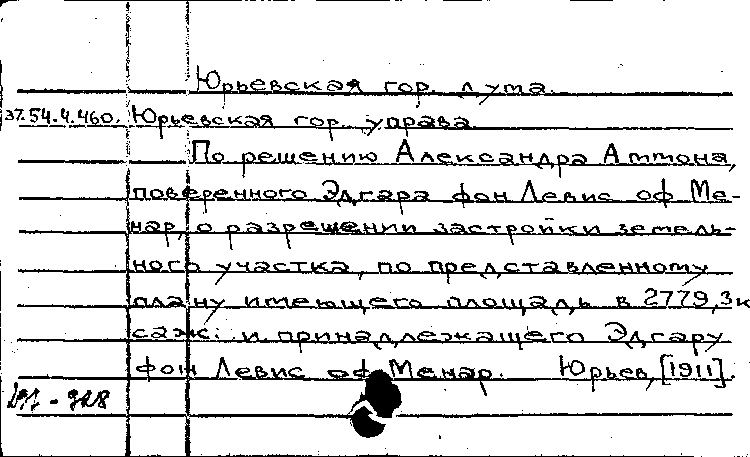 Юрьевская гор. дума.
37.54.4.460. Юрьевская гор. управа
По решению Александра Аттона,
поверенного Эдгара фон Левис оф Ме-
нар, о разрешении застройки земель-
ного участка, по представленному
плану имеющего площадь в 2779,3 к
саж. и принадлежащего Эдгару
фон Левис оф Менар. Юрьев, [1911].